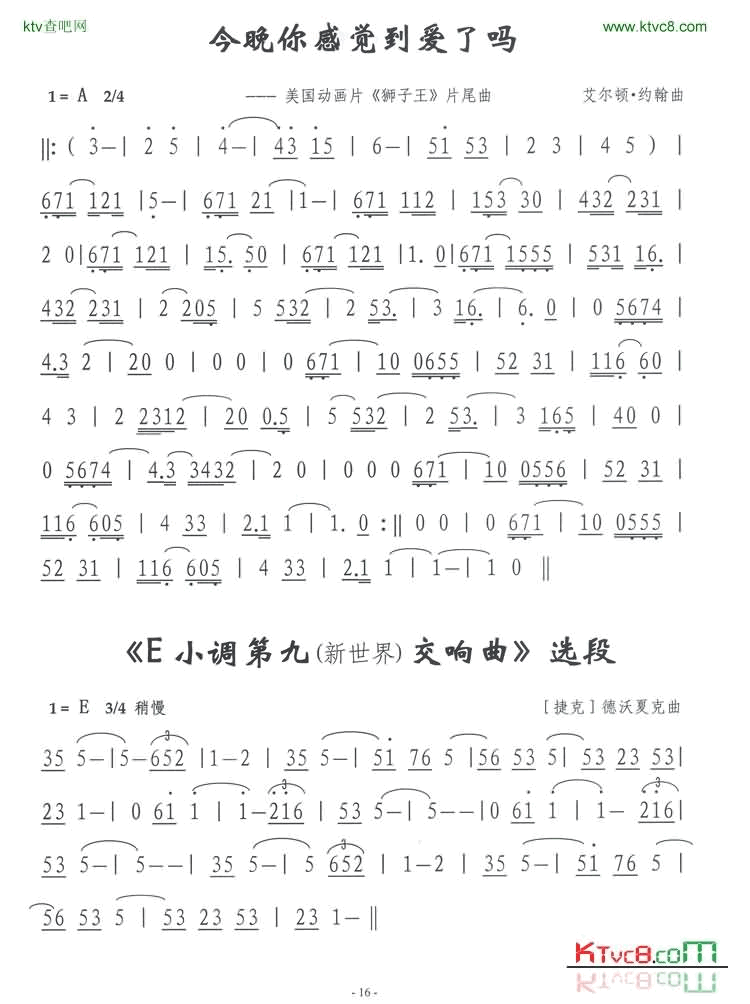 ktv查吧网
www.ktvc8.com
今晚你感觉到爱了吗
1= A 2/4 —— 美国动画片《狮子王》片尾曲 艾尔顿·约翰曲
‖: ( 3－| 2 5 | 4－| 43 15 | 6－| 51 53 | 2 3 | 4 5 ) |
671 121 |5－| 671 21 |1－| 671 112 | 153 30 | 432 231 |
2 0|671 121 | 15. 50 | 671 121 |1. 0|671 1555 | 531 16. |
432 231 | 2 205 | 5 532 | 2 53. | 3 16. | 6. 0 | 0 5674 |
4.3 2 | 20 0 | 0 0 | 0 671 | 10 0655 | 52 31 | 116 60 |
4 3 | 2 2312 | 20 0.5 | 5 532 | 2 53. | 3 165 | 40 0 |
0 5674 | 4.3 3432 | 2 0 | 0 0 0 671 | 10 0556 | 52 31 |
116 605 | 4 33 | 2.1 1 | 1. 0 :‖ 0 0 | 0 671 | 10 0555 |
52 31 | 116 605 | 4 33 | 2.1 1 | 1－| 1 0 ‖
《E 小调第九(新世界) 交响曲》选段
1= E 3/4 稍慢 [捷克]德沃夏克曲
35 5－|5－652 |1－2 | 35 5－| 51 76 5 |56 53 5| 53 23 53|
23 1－| 0 61 1 | 1－216 | 53 5－| 5－－|0 61 1 | 1－ 216|
53 5－| 5－－|1 35 | 5－ 5 | 5 652 | 1－2 | 35 5－| 51 76 5 |
56 53 5 | 53 23 53 | 23 1－ ‖
3
3
3
3
KTvc8.com
- 16 -